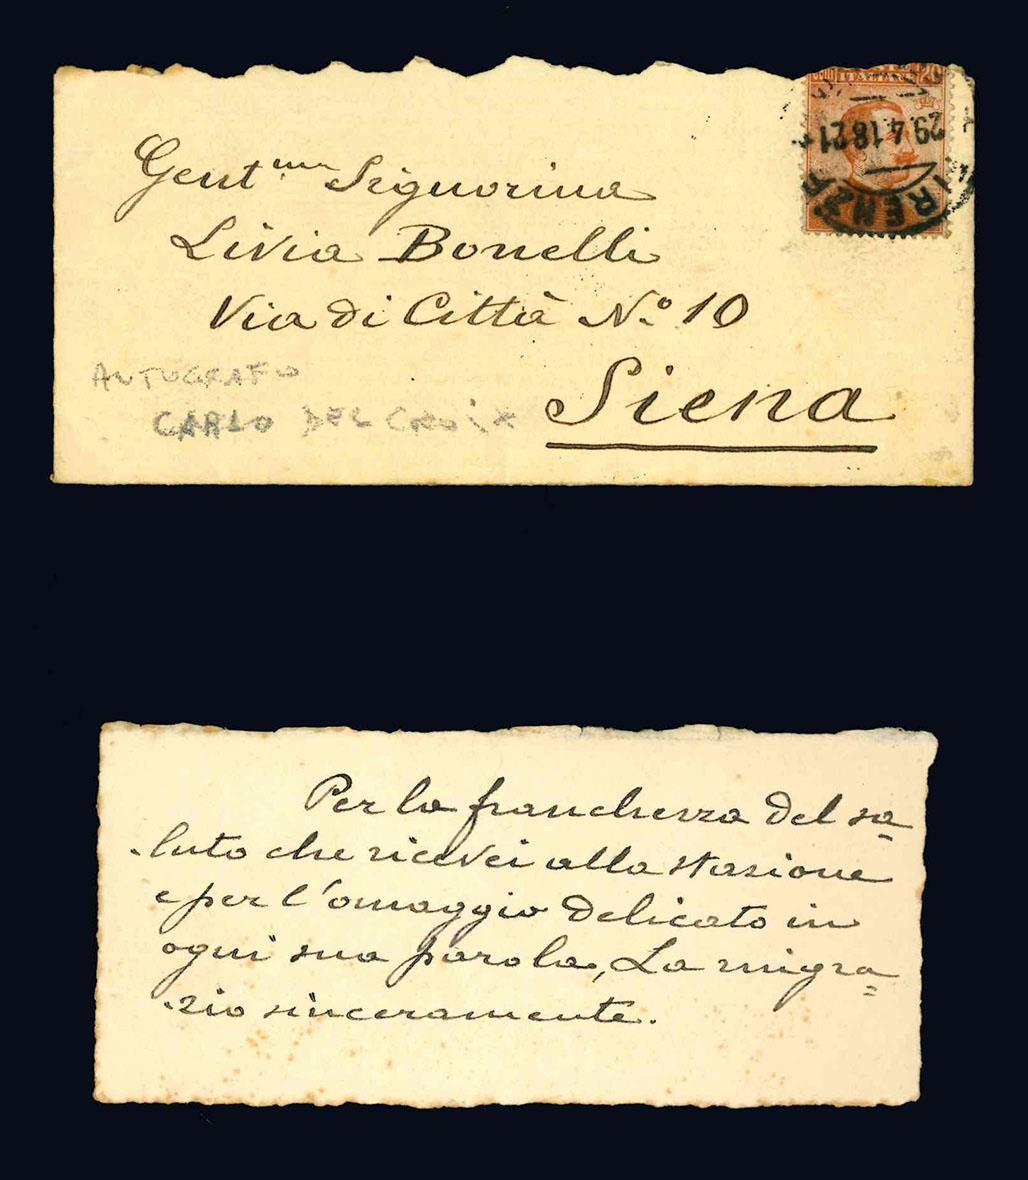 ITALIANE 20
29.4.18 21
FIRENZE
Gent.ma Signorina
Livia Bonelli
Via di Città N.º 10
Siena
AUTOGRAFO
CARLO DEL CROIX
Per la franchezza del sa=
luto che ricevei alla stazione
e per l'omaggio delicato in
ogni sua parola, La ringra=
zio sinceramente.